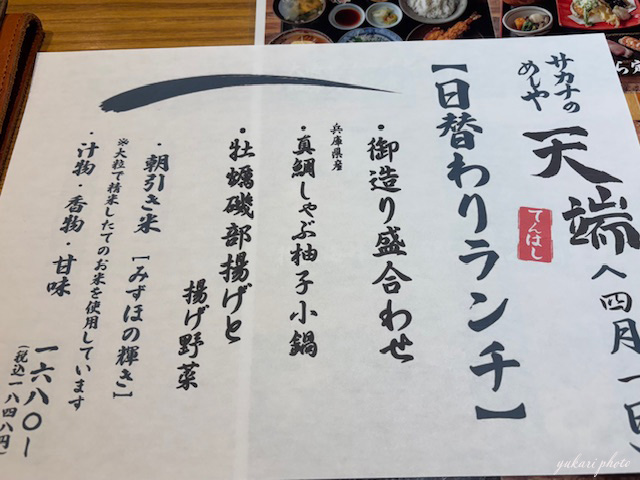 サカナの
めしや
天端
てんはし
四月一日
【日替わりランチ】
・御造り盛合わせ
兵庫県産
・真鯛しゃぶ柚子小鍋
・牡蠣磯部揚げと
揚げ野菜
・朝引き米 [みずほの輝き]
※大粒で精米したてのお米を使用しています
・汁物・香物・甘味
一六八〇ー
(税込一八四八円)
yukari photo